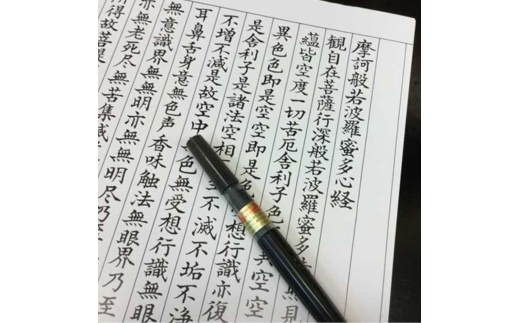 摩訶般若波羅蜜多心経
観自在菩薩行深般若波羅蜜多照見
蘊皆空度一切苦厄舎利子色異空空
異色色即是空空即是色想行識亦復
是舎利子是諸法空相不滅不垢不浄
不増不減是故空中色無受想行識無
耳鼻舌身意無色声香味触法無眼界乃至
無意識界無無明亦無無明尽乃至
亦無老死尽無苦集滅
所得故菩提